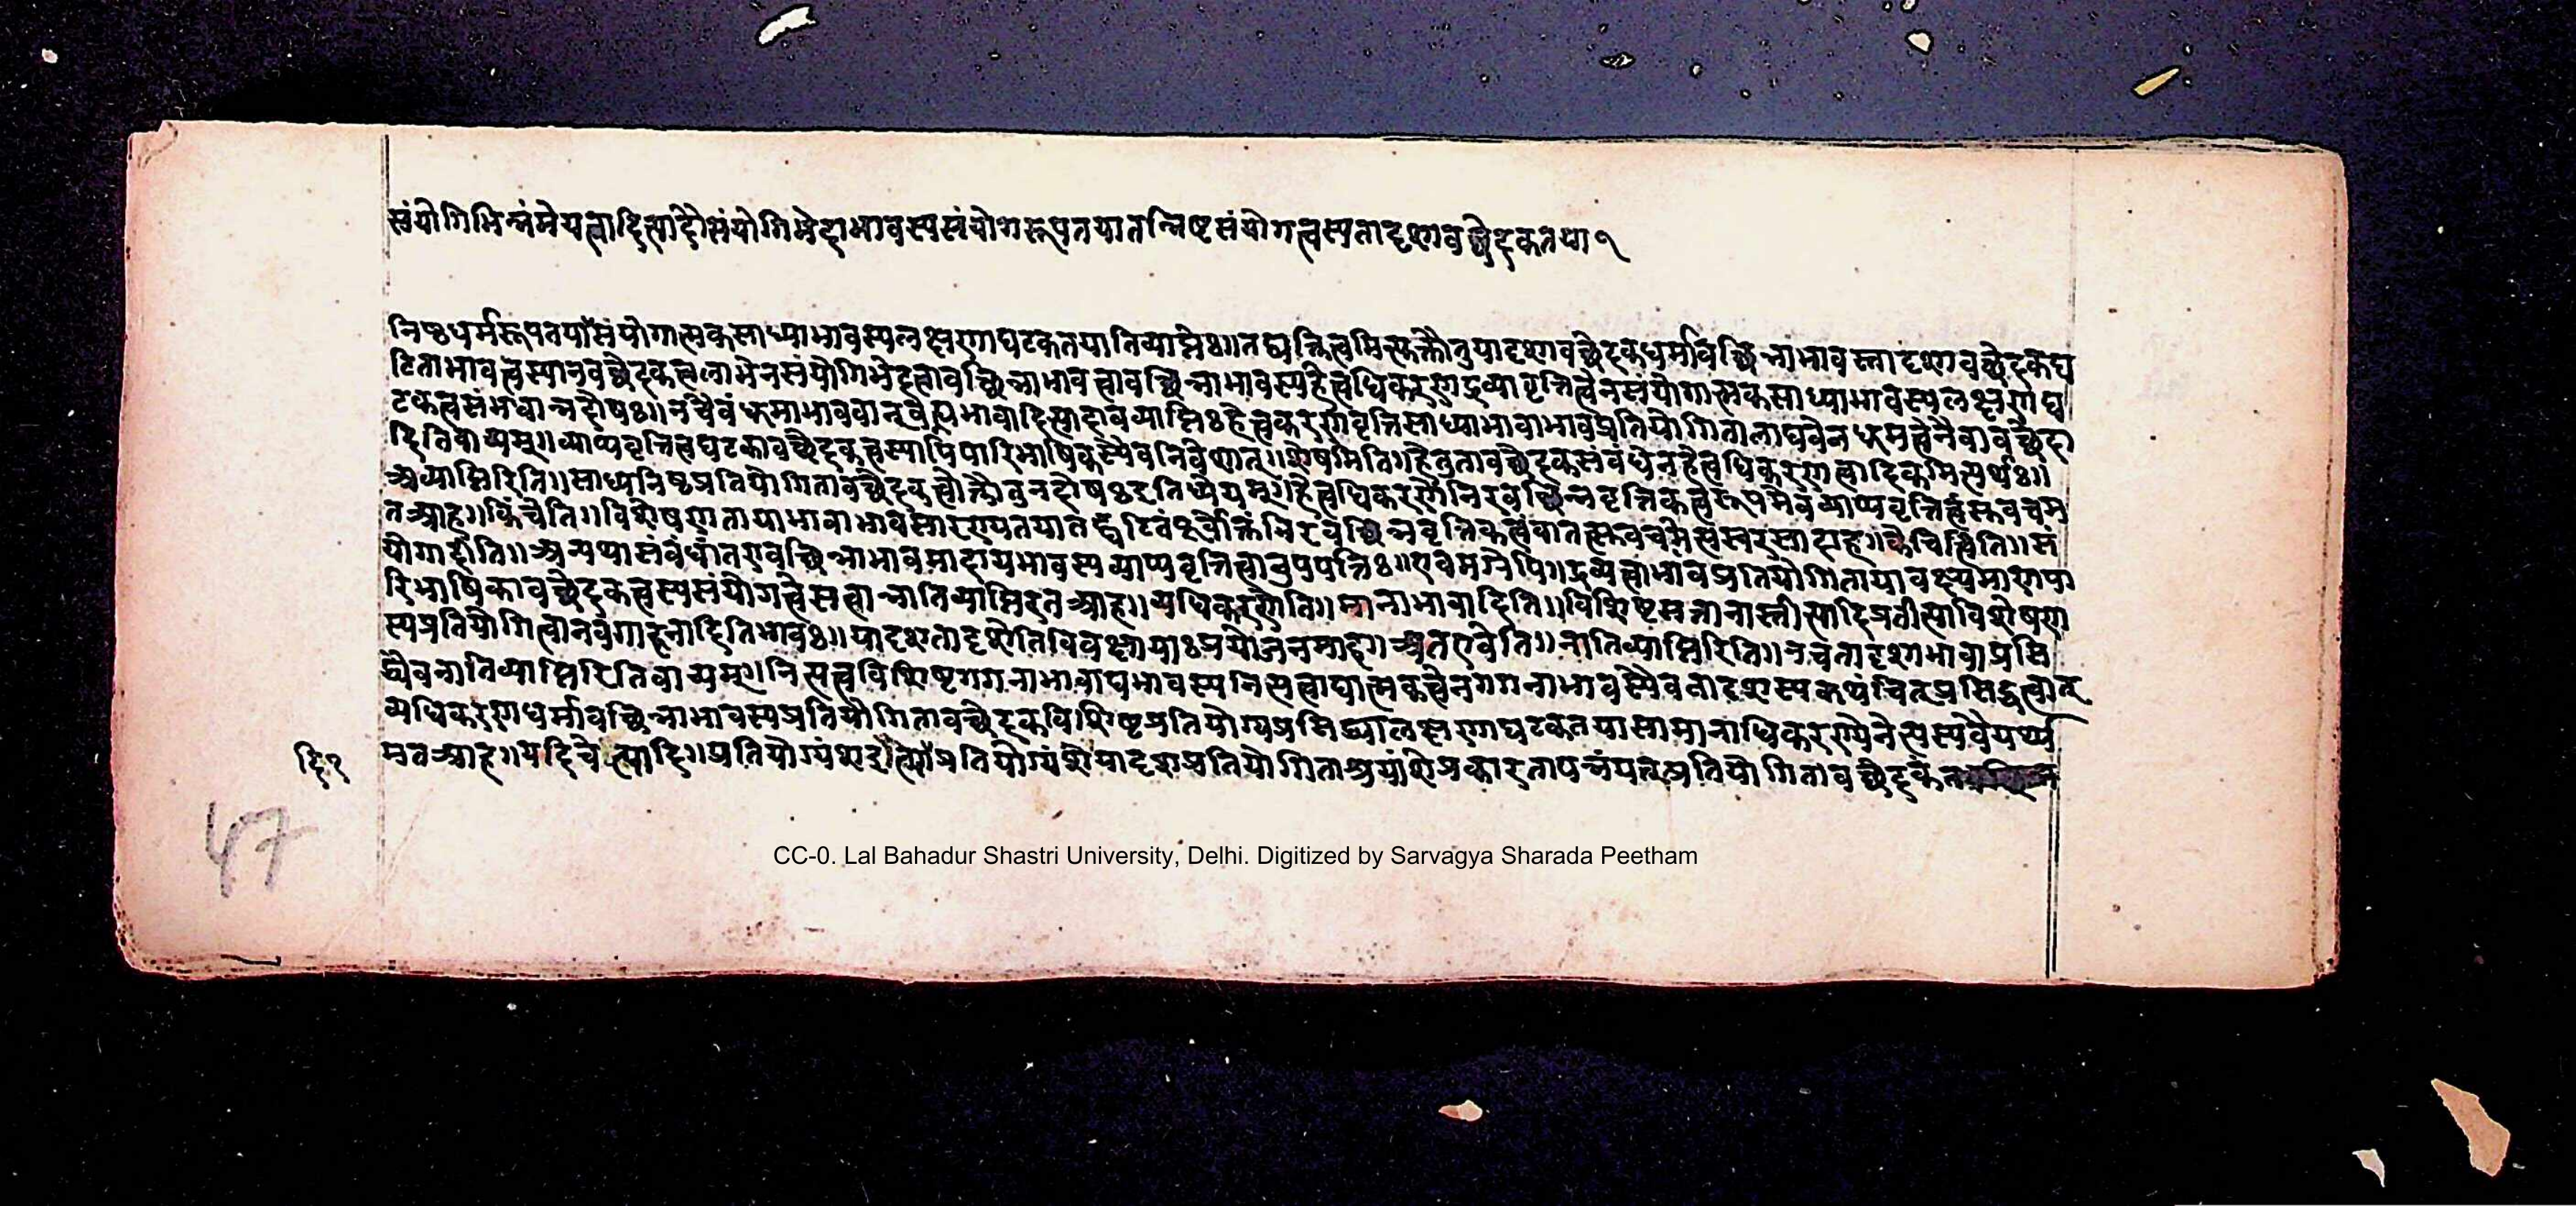 संयोगिभिन्नंमेयत्वादित्यादौसंयोगिभेदाभावस्यसंयोगरूपतयातन्निष्टसंयोगत्वस्यतादृशावच्छेदकतया१
निष्ठधर्मरूपतयासंयोगात्मकसाध्याभावस्यलक्षणाघटकतयातिव्याप्तेः॥तद्यक्तित्वमित्युक्तौतुयादृशावच्छेदकधर्मावच्छिन्नाभावस्तादृशावच्छेदकघ
टिताभावत्वस्यानवच्छेदकत्वलाभेनसंयोगिभेदत्वावच्छिन्नाभावत्वावच्छिन्नाभावस्यहेत्वधिकरणद्रव्यावृत्तित्वेनसंयोगात्मकसाध्याभावस्यलक्षणाघ
टकत्वसंभवान्नदोषः॥नचैवंधूमाभाववान्वह्न्यभावादित्यादावव्याप्तिःहेत्वधिकरणवृत्तिसाध्याभावाभावप्रतियोगितालाघवेनधूमत्वेनैवावच्छेदा
दितिवाच्यम्॥व्याप्यवृत्तित्वघटकावच्छेदकत्वस्यापिपारिभाषिकस्यैवनिवेशात्॥शेषमिति॥हेतुतावच्छेदकसंबंधेनहेत्वधिकरणत्वादिकमित्यर्थः॥
अव्याप्तिरिति॥साध्यनिष्ठप्रतियोगितावच्छेदकत्वोक्तौतुनदोषइतिध्येयम्॥हेत्वधिकरणेनिरवच्छिन्नवृत्तिकत्वरूपमेवव्याप्यवृत्तित्वंस्तवचम
तआह॥किंचेति॥विशेषणतायाभावाभावसारण्यतयातद्घटितंपूर्वोक्तंनिरवच्छिन्नवृत्तिकत्वंवातत्स्तवचमित्यस्वरसादाह॥केचित्त्विति॥सं
योगादौति॥अन्यथासंबंधांतरावच्छिन्नाभावमादायमभावस्यव्याप्यवृत्तित्वानुपपत्तिः॥एवमग्रेपि॥द्रव्यत्वाभावप्रतियोगितायावक्ष्यमाणपा
रिभाषिकावच्छेदकत्वस्यसंयोगत्वेसत्वान्नातिव्याप्तिरतआह॥व्यधिकरणेति॥मानाभावादिति॥विशिष्टसत्तानास्तीत्यादिप्रतीत्याविशेषण
स्यप्रतियोगित्वानवगाहनादितिभावः॥यादृशतादृशेतिविवक्षायाःप्रयोजनमाह॥अतएवेति॥नातिव्याप्तिरिति॥नचतादृशाभावाप्रसि
द्ध्यैवनातिव्याप्तिरितिवाच्यम्॥नित्यत्वविशिष्टगगनाभावाद्यभावस्यनित्यत्वाद्यात्मकत्वेनगगनाभावस्यैवतादृशस्यकथंचित्प्रसिद्धत्वात्
व्यधिकरणधर्मावच्छिन्नाभावस्यप्रतियोगितावच्छेदकविशिष्टप्रतियोग्यप्रसिद्ध्यालक्षणाघटकतयासामानाधिकरण्येनेत्यस्यवैयर्थ्य
मतआह॥यदिचेत्यादि॥प्रतियोग्यंशइत्यप्रतियोग्यंशेयादृशप्रतियोगिताश्रयांशेप्रकारतापन्नंयत्तत्प्रतियोगितावच्छेदकंत
दि१
47
CC-0. Lal Bahadur Shastri University, Delhi. Digitized by Sarvagya Sharada Peetham